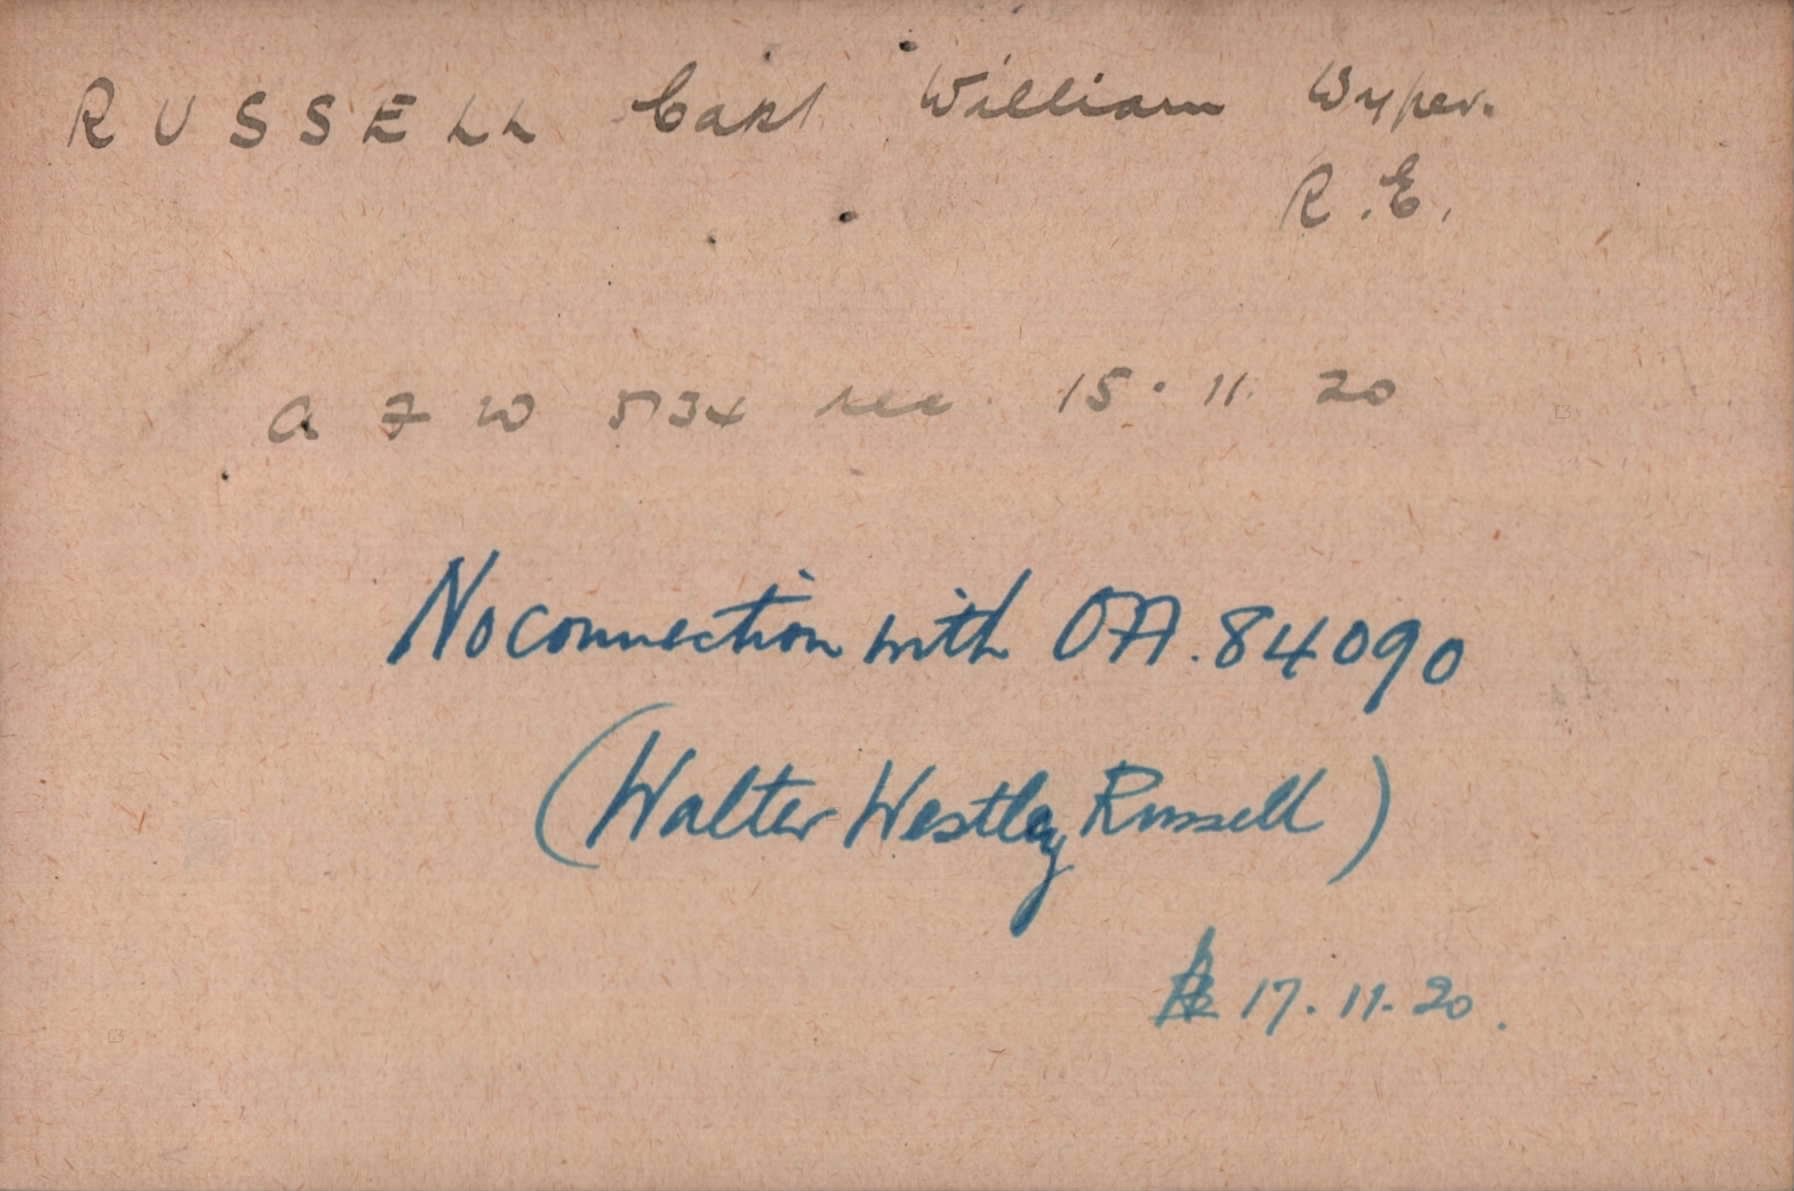 RUSSELL Capt William Wyper.
R.E.
A F W 5134 rec 15.11.20
No connection with OA.84090
(Walter Westley Russell)
17.11.20.